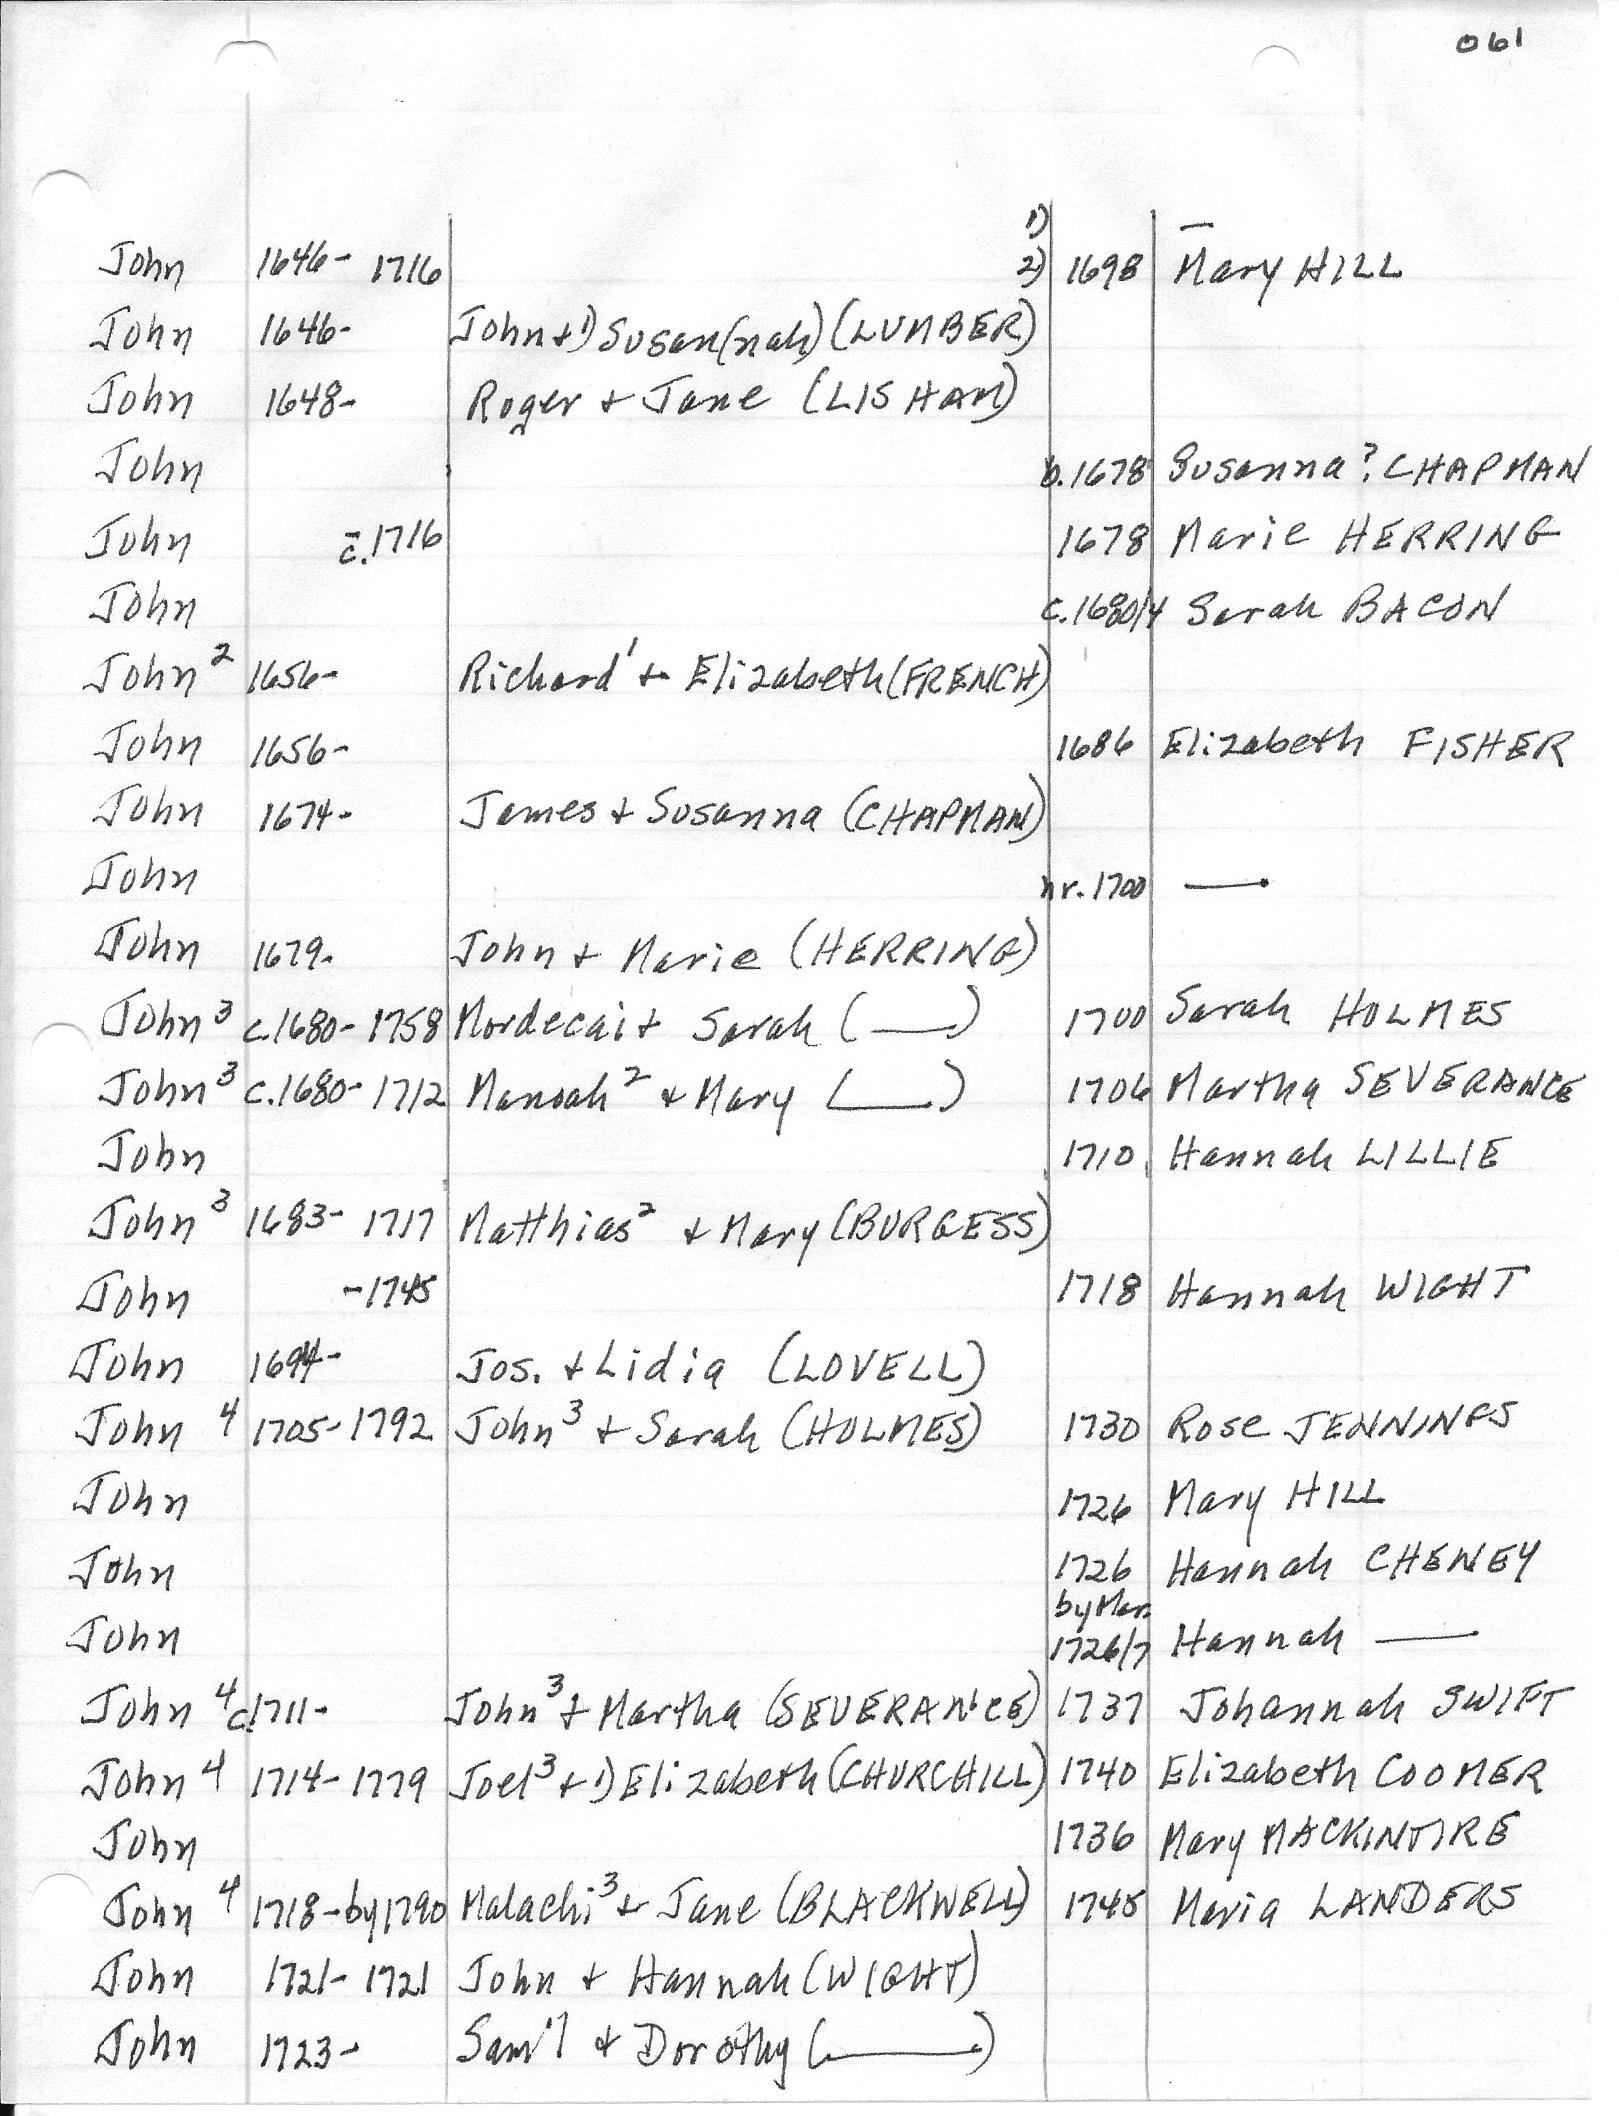 061
1) —
John 1646- 1716 2) 1698 Mary HILL
John 1646- John + 1) Susan(nah) (LUMBER)
John 1648- Roger + Jane (LISHAM)
John b.1678 Susanna? CHAPMAN
John - c.1716 1678 Marie HERRING
John c.1680/4 Sarah BACON
John² 1656- Richard¹ + Elizabeth (FRENCH)
John 1656- 1686 Elizabeth FISHER
John 1674- James + Susanna (CHAPMAN)
John nr. 1700 —
John 1679- John + Marie (HERRING)
John³ c.1680- 1758 Mordecai + Sarah (—) 1700 Sarah HOLMES
John³ c.1680- 1712 Manoah² + Mary (—) 1706 Martha SEVERANCE
John 1710 Hannah LILLIE
John³ 1683- 1717 Matthias² + Mary (BURGESS)
John -1745 1718 Hannah WIGHT
John 1694- Jos. + Lidia (LOVELL)
John⁴ 1705- 1792 John³ + Sarah (HOLMES) 1730 Rose JENNINGS
John 1726 Mary HILL
John 1726 Hannah CHENEY
by Mar.
John 1726/7 Hannah —
John⁴ c.1711- John³ + Martha (SEVERANCE) 1737 Johannah SWIFT
John⁴ 1714- 1779 Joel³ + 1) Elizabeth (CHURCHILL) 1740 Elizabeth COOMER
John 1736 Mary MACKINTIRE
John⁴ 1718-by1790 Malachi³ + Jane (BLACKWELL) 1745 Maria LANDERS
John 1721- 1721 John + Hannah (WIGHT)
John 1723- Sam'l + Dorothy (—)